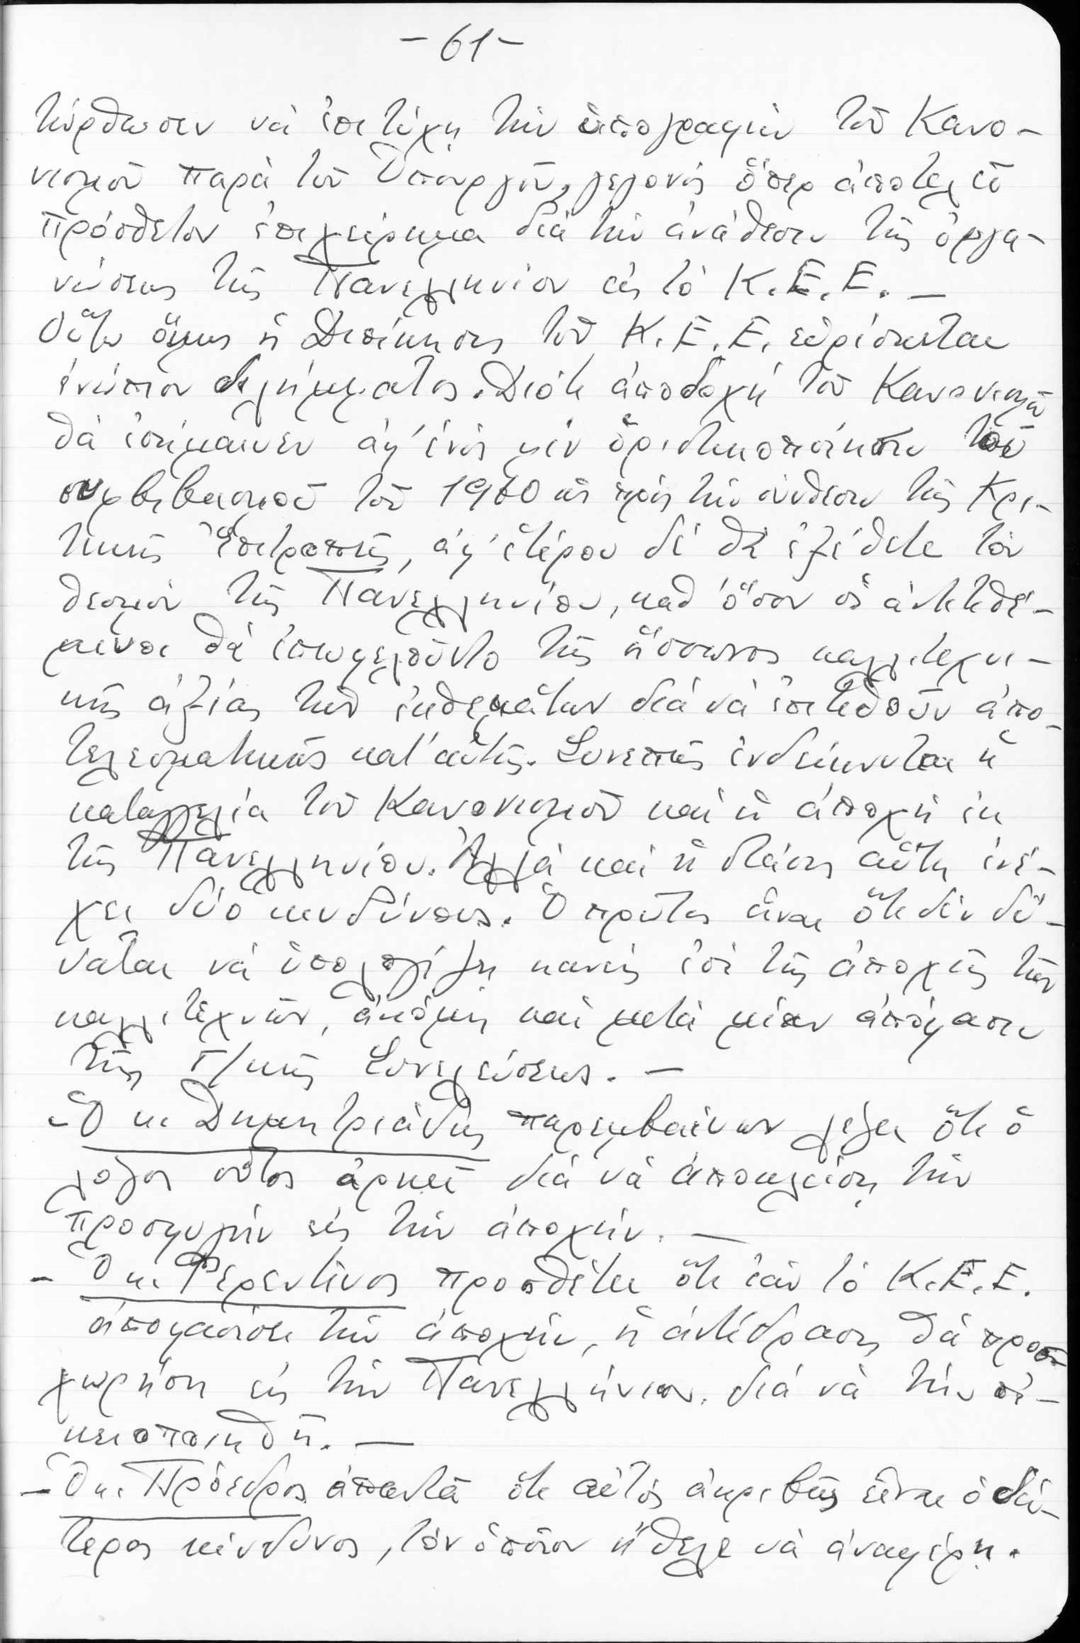 - 61 -
τώρθωσεν νὰ ἐπιτύχῃ τὴν ὑπογραφὴν τοῦ Κανο-
νισμοῦ παρὰ τοῦ Ὑπουργοῦ, γεγονὸς ὅπερ ἀποτελεῖ
πρόσθετον ἐπιχείρημα διὰ τὴν ἀνάθεσιν τῆς ὀργα-
νώσεως τῆς Πανελληνίου εἰς τὸ Κ.Ε.Ε. —
Οὕτω ὅμως ἡ Διοίκησις τοῦ Κ.Ε.Ε. εὑρίσκεται
ἐνώπιον διλήμματος. Διότι ἀποδοχὴ τοῦ Κανονισμοῦ
θὰ ἐσήμαινεν ἀφ' ἑνὸς μὲν ὁριστικοποίησιν τοῦ
συμβιβασμοῦ τοῦ 1960 ὡς πρὸς τὴν σύνθεσιν τῆς Κρι-
τικῆς Ἐπιτροπῆς, ἀφ' ἑτέρου δὲ θὰ ἐξέθετε τὸν
θεσμὸν τῆς Πανελληνίου, καθ' ὅσον οἱ ἀντιτιθέ-
μενοι θὰ ἐπωφελοῦντο τῆς ἥσσονος καλλιτεχνι-
κῆς ἀξίας τῶν ἐκθεμάτων διὰ νὰ ἐπιτεθοῦν ἀπο-
τελεσματικῶς κατ' αὐτῆς. Συνεπῶς ἐνδείκνυται ἡ
καταγγελία τοῦ Κανονισμοῦ καὶ ἡ ἀποχὴ ἐκ
τῆς Πανελληνίου. Ἀλλὰ καὶ ἡ στάσις αὕτη ἐνέ-
χει δύο κινδύνους. Ὁ πρῶτος εἶναι ὅτι δὲν δύ-
ναται νὰ ὑπολογίζῃ κανεὶς ἐπὶ τῆς ἀποχῆς τῶν
καλλιτεχνῶν, ἀκόμη καὶ μετὰ μίαν ἀπόφασιν
τῆς Γ/κῆς Συνελεύσεως. —
- Ὁ κ. Δημητριάδης παρεμβαίνων λέγει ὅτι ὁ
λόγος οὗτος ἀρκεῖ διὰ νὰ ἀποκλείσῃ τὴν
προσφυγὴν εἰς τὴν ἀποχήν. —
- Ὁ κ. Φερεντίνος προσθέτει ὅτι ἐὰν τὸ Κ.Ε.Ε.
ἀποφασίσῃ τὴν ἀποχήν, ἡ ἀντίδρασις θὰ προσ-
χωρήσῃ εἰς τὴν Πανελλήνιον, διὰ νὰ τὴν οἰ-
κειοποιηθῇ. —
- Ὁ κ. Πρόεδρος ἀπαντᾶ ὅτι αὐτὸς ἀκριβῶς εἶναι ὁ δεύ-
τερος κίνδυνος, τὸν ὁποῖον ἤθελε νὰ ἀναφέρῃ.